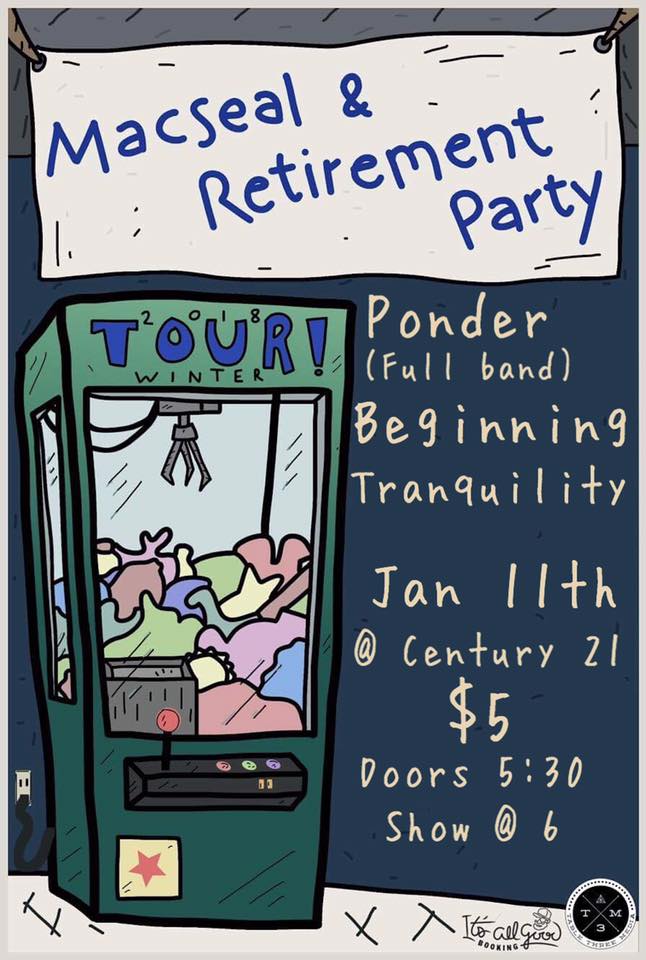 Macseal &
Retirement
Party
2018
TOUR!
WINTER
Ponder
(Full band)
Beginning
Tranquility
Jan 11th
@ Century 21
$5
Doors 5:30
Show @ 6
It's all good
BOOKING
T M
3
TABLE THREE MEDIA